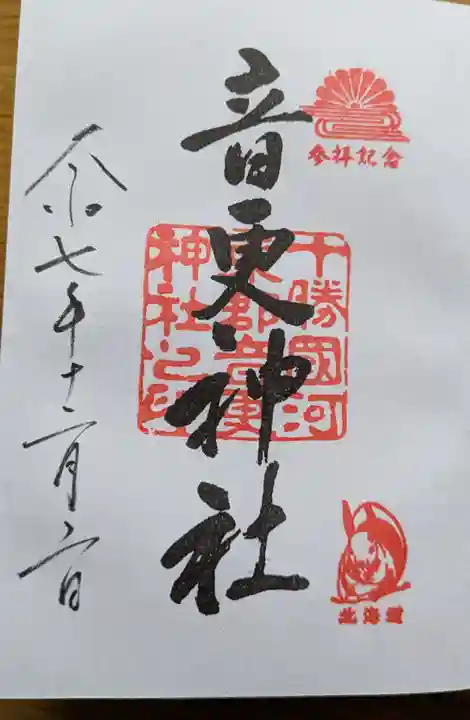 参拝記念
音更神社
十勝國河
東郡音更
神社之印
北海道
令和七年十二月六日